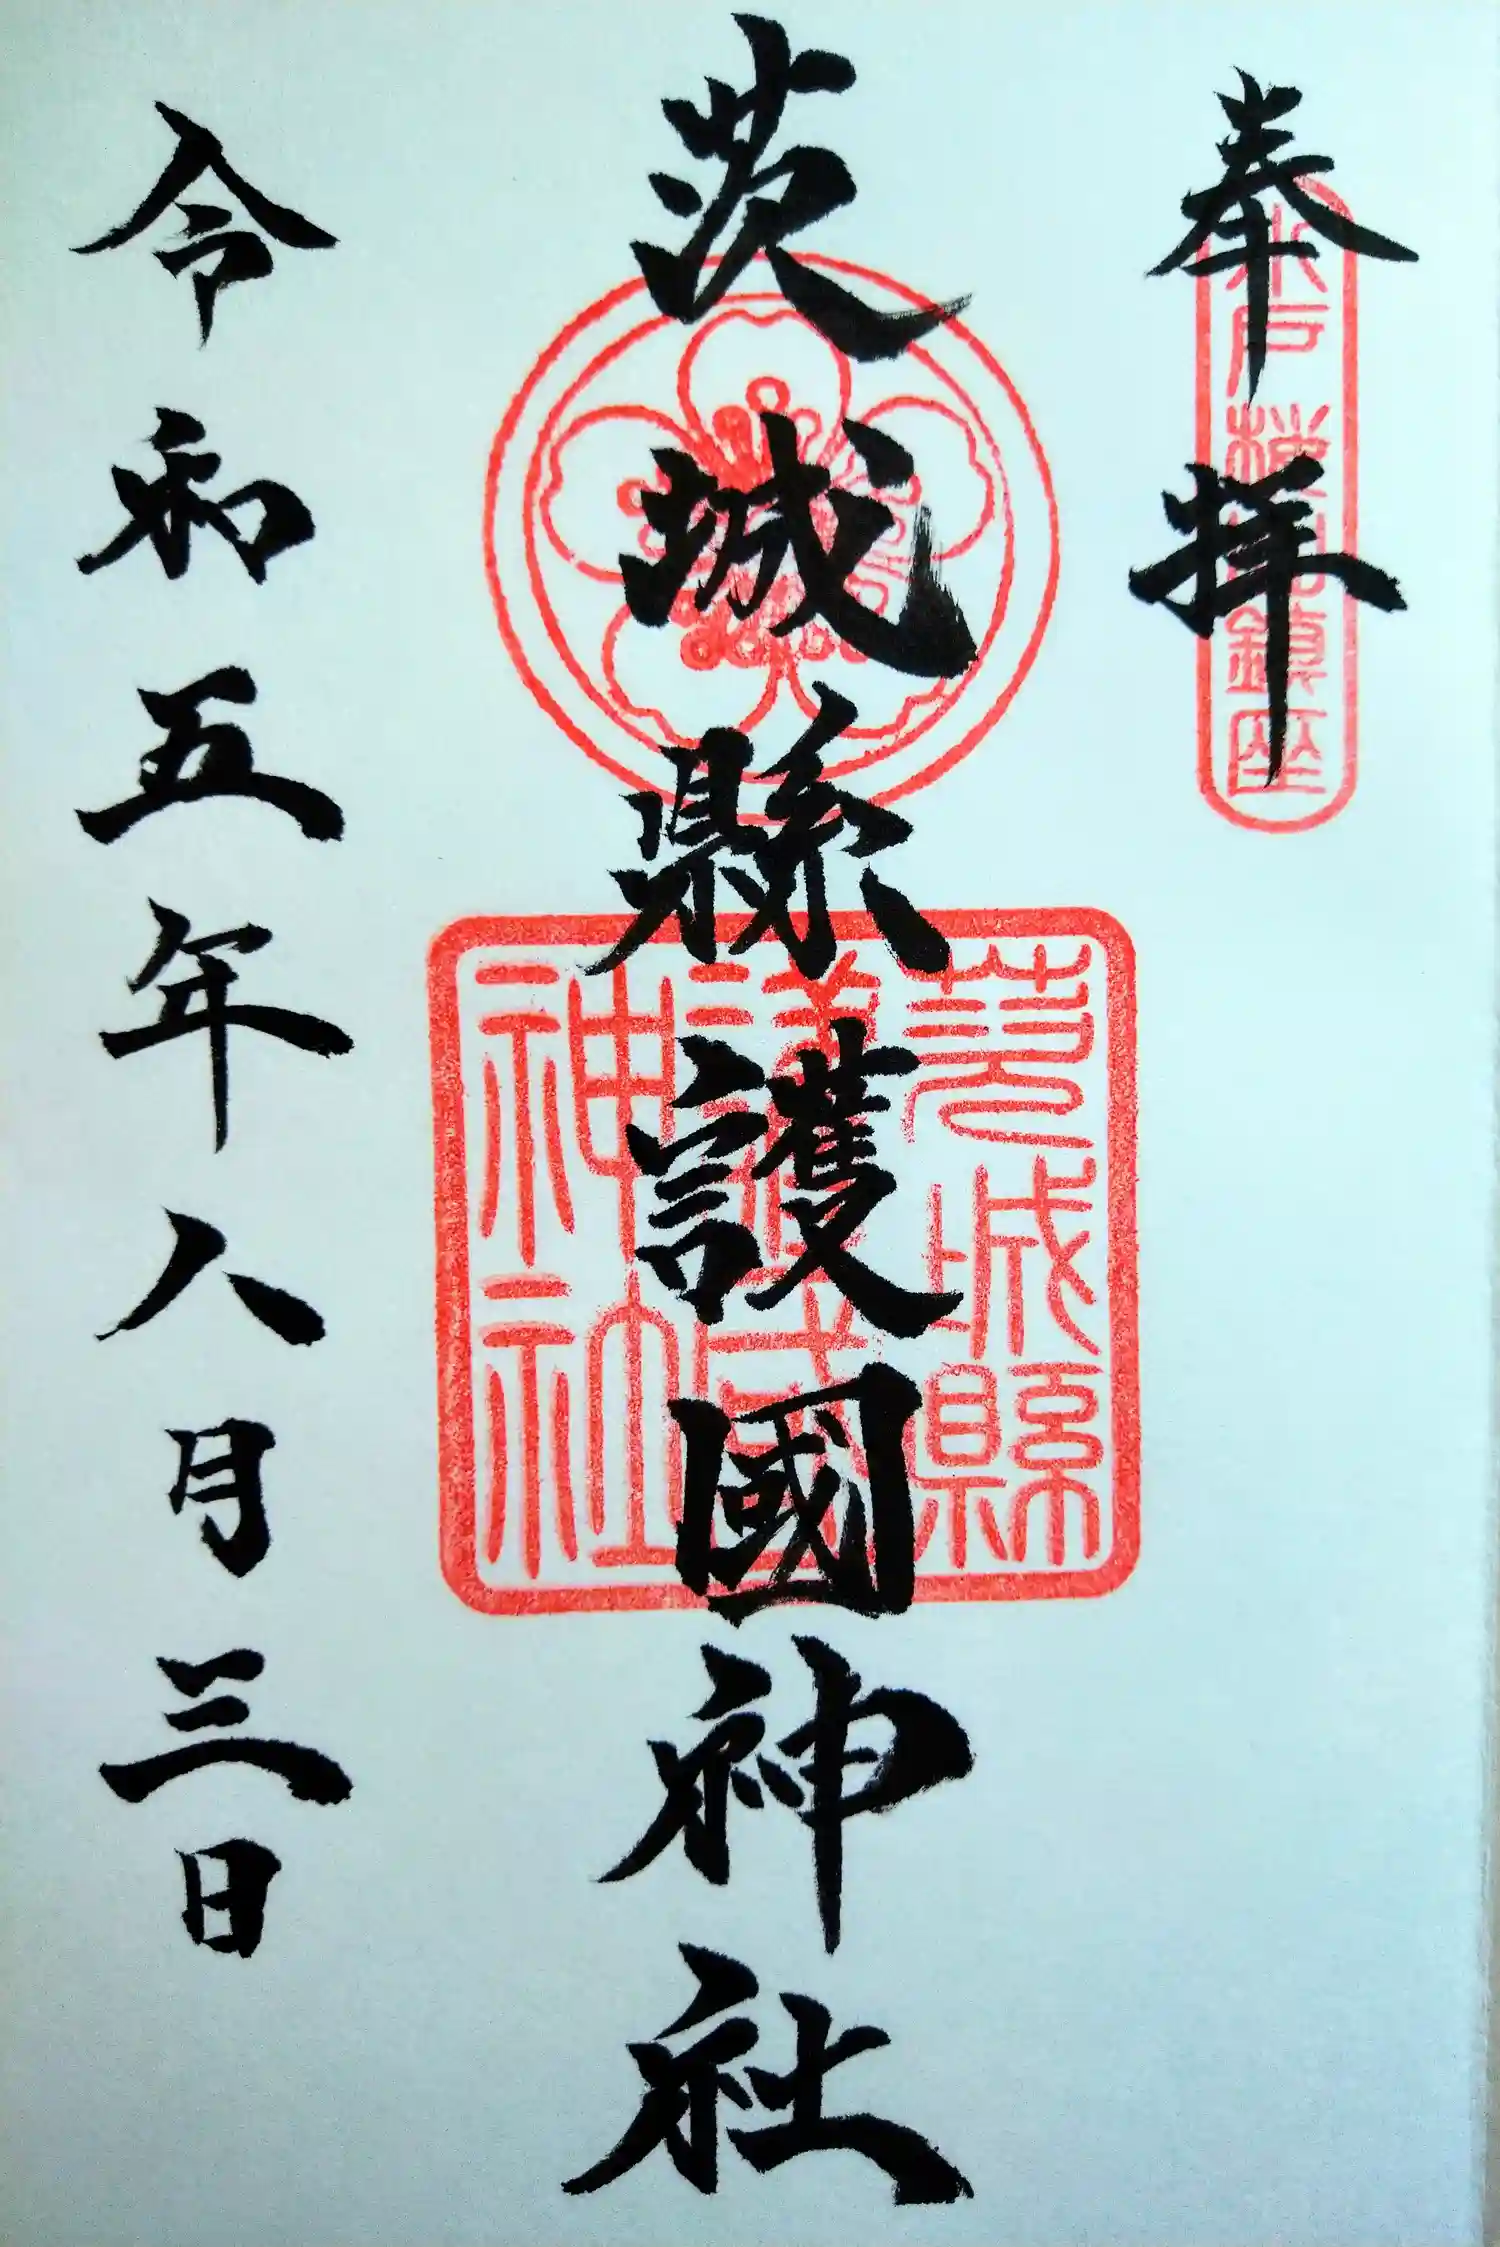 奉拝
水戸桜山鎮座
茨城縣護國神社
茨城縣
護國
神社
令和五年八月三日